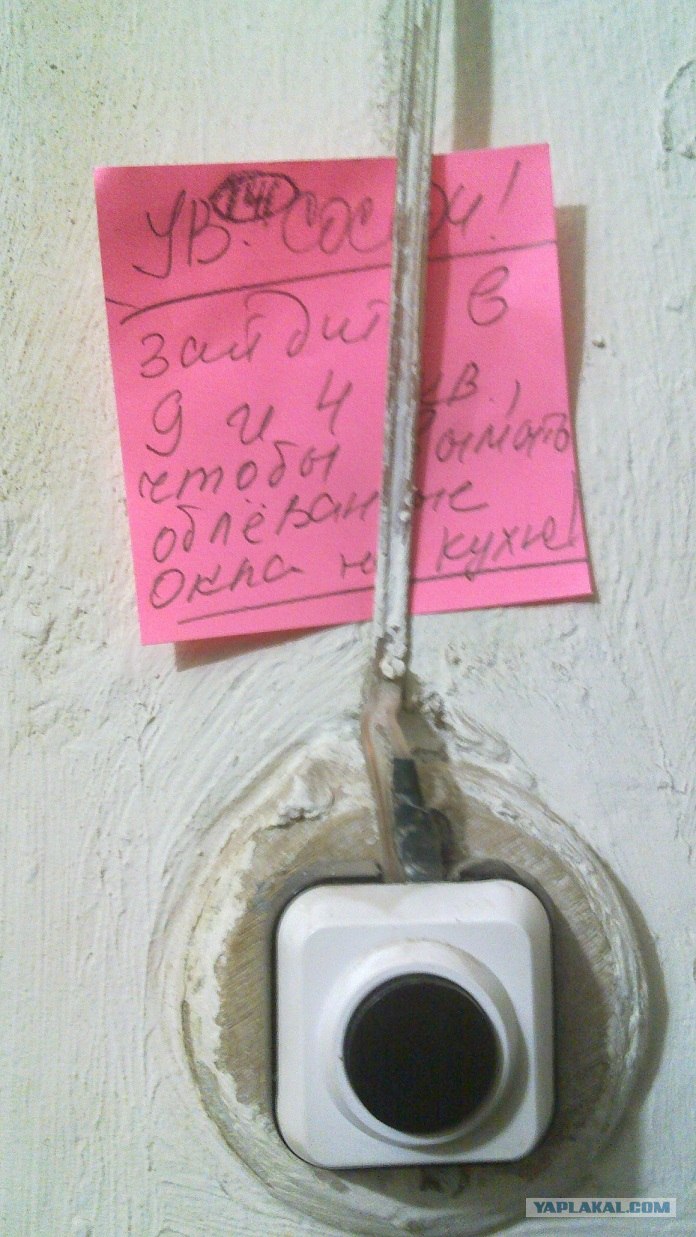 УВ. СОСЕДИ!
зайдите в
9 и 4 кв.,
чтобы вымыть
облёванные
окна на кухне!
YAPLAKAL.COM